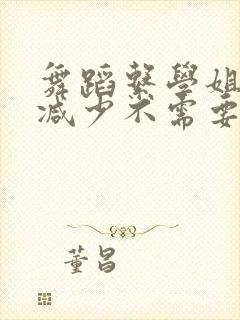 舞蹈繫學姐
減少不需要
董昌